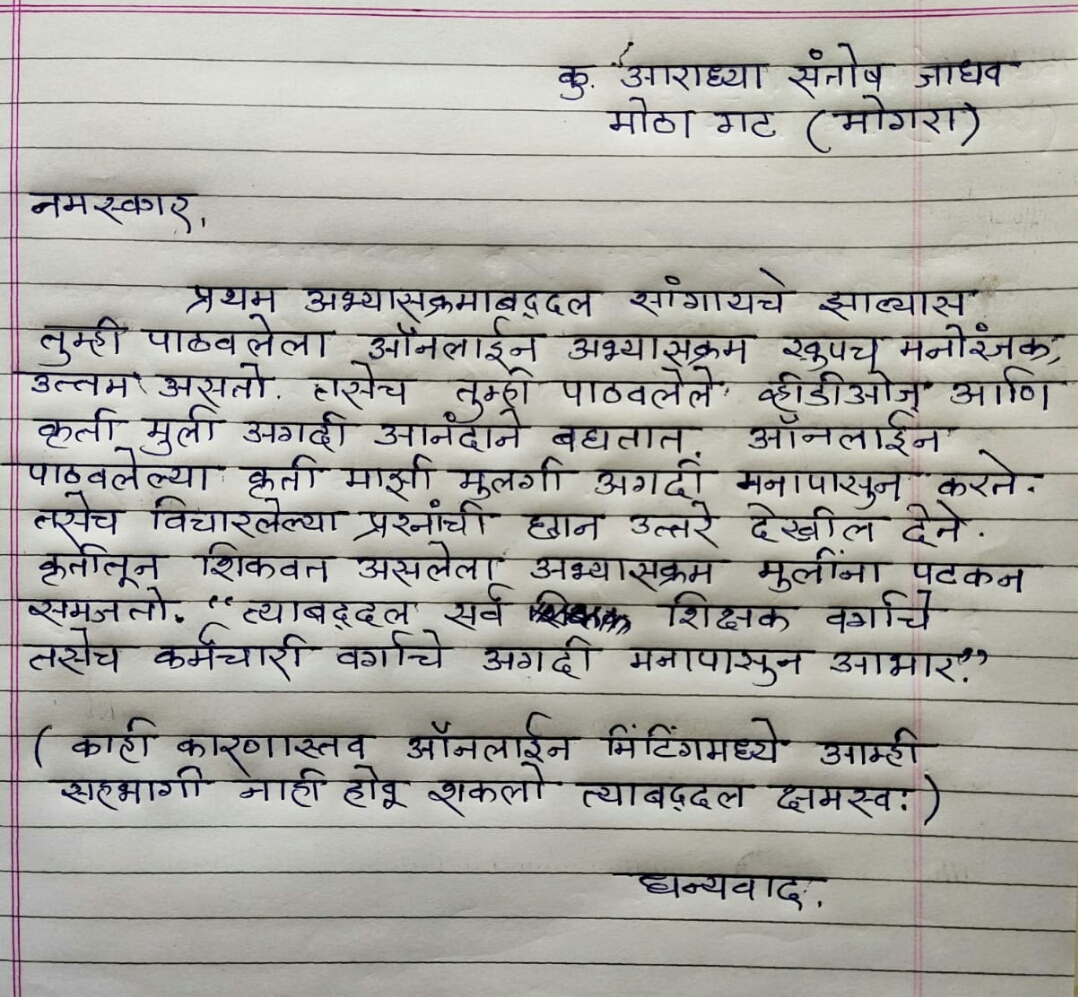 कु. आराध्या संतोष जाधव
मोठा गट (मोगरा)
नमस्कार,
प्रथम अभ्यासक्रमाबद्दल सांगायचे झाल्यास
तुम्ही पाठवलेला ऑनलाईन अभ्यासक्रम खुपच मनोरंजक,
उत्तम असतो. तसेच तुम्ही पाठवलेले व्हीडीओज् आणि
कृती मुली अगदी आनंदाने बघतात. ऑनलाईन
पाठवलेल्या कृती माझी मुलगी अगदी मनापासुन करते.
तसेच विचारलेल्या प्रश्नांची छान उत्तरे देखील देते.
कृतीतून शिकवत असलेला अभ्यासक्रम मुलींना पटकन
समजतो. "त्याबद्दल सर्व शिक्षक वर्गाचे
तसेच कर्मचारी वर्गाचे अगदी मनापासुन आभार."
( काही कारणास्तव ऑनलाईन मिटिंगमध्ये आम्ही
सहभागी नाही होवू शकलो त्याबद्दल क्षमस्व: )
धन्यवाद.